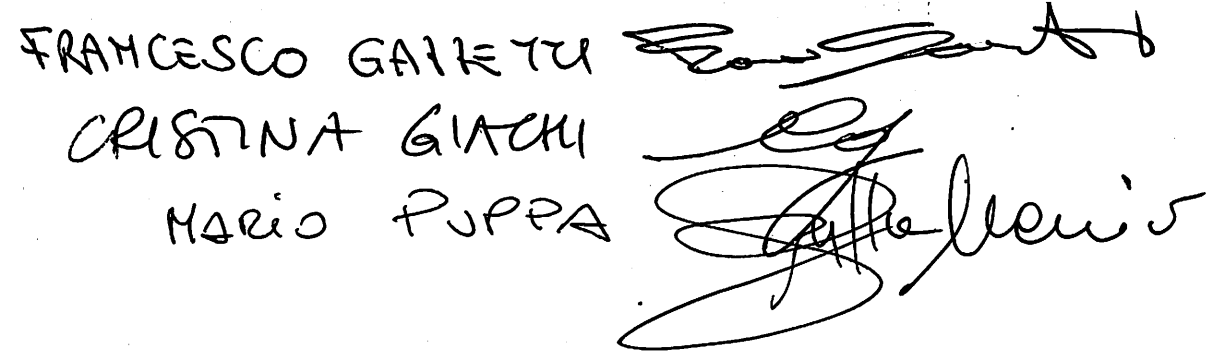 FRANCESCO GAZZETTI
CRISTINA GIACHI
MARIO PUPPA Puppa Mario